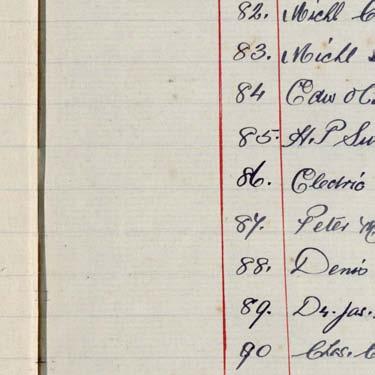 82. Michl
83. Michl
84 Edw
85. H. P
86. Electric
87. Peter
88. Denis
89. Dr. Jas.
90 Chas.